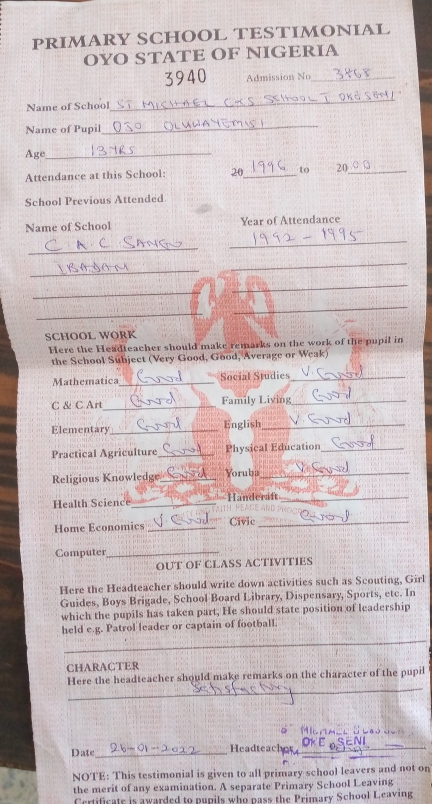 PRIMARY SCHOOL TESTIMONIAL
OYO STATE OF NIGERIA
3940 Admission No 3868
Name of School ST MICHAEL C&S SCHOOL I OKE SENI
Name of Pupil OSO OLUWAYEMISI
Age 13 YRS
Attendance at this School: 20 1996 to 20 00
School Previous Attended
Name of School Year of Attendance
C.A.C SANGO 1992 - 1995
IBADAN
SCHOOL WORK
Here the Headteacher should make remarks on the work of the pupil in
the School Subject (Very Good, Good, Average or Weak)
Mathematica Good Social Studies V. Good
C & C Art Good Family Living Good
Elementary Good English V. Good
Practical Agriculture Good Physical Education Good
Religious Knowledge Good Yoruba V. Good
Health Science Handcraft
Home Economics V. Good Civic Good
Computer
OUT OF CLASS ACTIVITIES
Here the Headteacher should write down activities such as Scouting, Girl
Guides, Boys Brigade, School Board Library, Dispensary, Sports, etc. In
which the pupils has taken part, He should state position of leadership
held e.g. Patrol leader or captain of football.
CHARACTER
Here the headteacher should make remarks on the character of the pupil
Satisfactory
MICHAEL
OKE SENI
Date 26-01-2022 Headteacher
NOTE: This testimonial is given to all primary school leavers and not on
the merit of any examination. A separate Primary School Leaving
Certificate is awarded to pupils who pass the Primary School Leaving